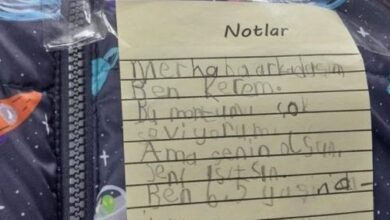 Notlar
Merhaba arkadaşım
Ben Kerem.
Bu montumu çok
seviyorum
Ama senin olsun
Seni ısıtsın.
Ben 6.5 yaşında